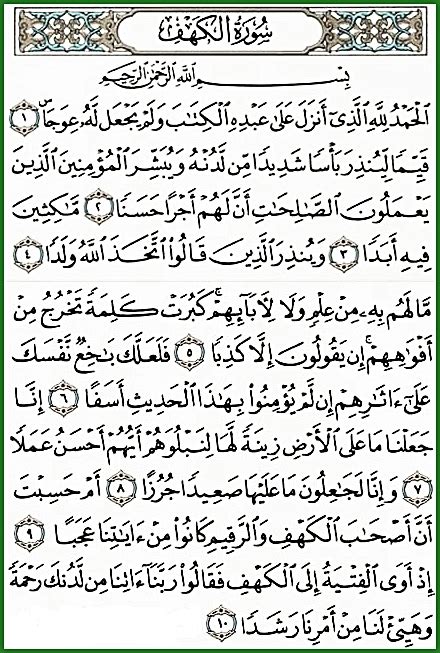 سُورَةُ الكَهْفِ
بِسْمِ اللَّهِ الرَّحْمَٰنِ الرَّحِيمِ
الْحَمْدُ لِلَّهِ الَّذِي أَنزَلَ عَلَىٰ عَبْدِهِ الْكِتَابَ وَلَمْ يَجْعَل لَّهُ عِوَجًا ۜ ١
قَيِّمًا لِّيُنذِرَ بَأْسًا شَدِيدًا مِّن لَّدُنْهُ وَيُبَشِّرَ الْمُؤْمِنِينَ الَّذِينَ
يَعْمَلُونَ الصَّالِحَاتِ أَنَّ لَهُمْ أَجْرًا حَسَنًا ٢ مَّاكِثِينَ
فِيهِ أَبَدًا ٣ وَيُنذِرَ الَّذِينَ قَالُوا اتَّخَذَ اللَّهُ وَلَدًا ٤
مَّا لَهُم بِهِ مِنْ عِلْمٍ وَلَا لِآبَائِهِمْ ۚ كَبُرَتْ كَلِمَةً تَخْرُجُ مِنْ
أَفْوَاهِهِمْ ۚ إِن يَقُولُونَ إِلَّا كَذِبًا ٥ فَلَعَلَّكَ بَاخِعٌ نَّفْسَكَ
عَلَىٰ آثَارِهِمْ إِن لَّمْ يُؤْمِنُوا بِهَٰذَا الْحَدِيثِ أَسَفًا ٦ إِنَّا
جَعَلْنَا مَا عَلَى الْأَرْضِ زِينَةً لَّهَا لِنَبْلُوَهُمْ أَيُّهُمْ أَحْسَنُ عَمَلًا
٧ وَإِنَّا لَجَاعِلُونَ مَا عَلَيْهَا صَعِيدًا جُرُزًا ٨ أَمْ حَسِبْتَ
أَنَّ أَصْحَابَ الْكَهْفِ وَالرَّقِيمِ كَانُوا مِنْ آيَاتِنَا عَجَبًا ٩
إِذْ أَوَى الْفِتْيَةُ إِلَى الْكَهْفِ فَقَالُوا رَبَّنَا آتِنَا مِن لَّدُنكَ رَحْمَةً
وَهَيِّئْ لَنَا مِنْ أَمْرِنَا رَشَدًا ١٠